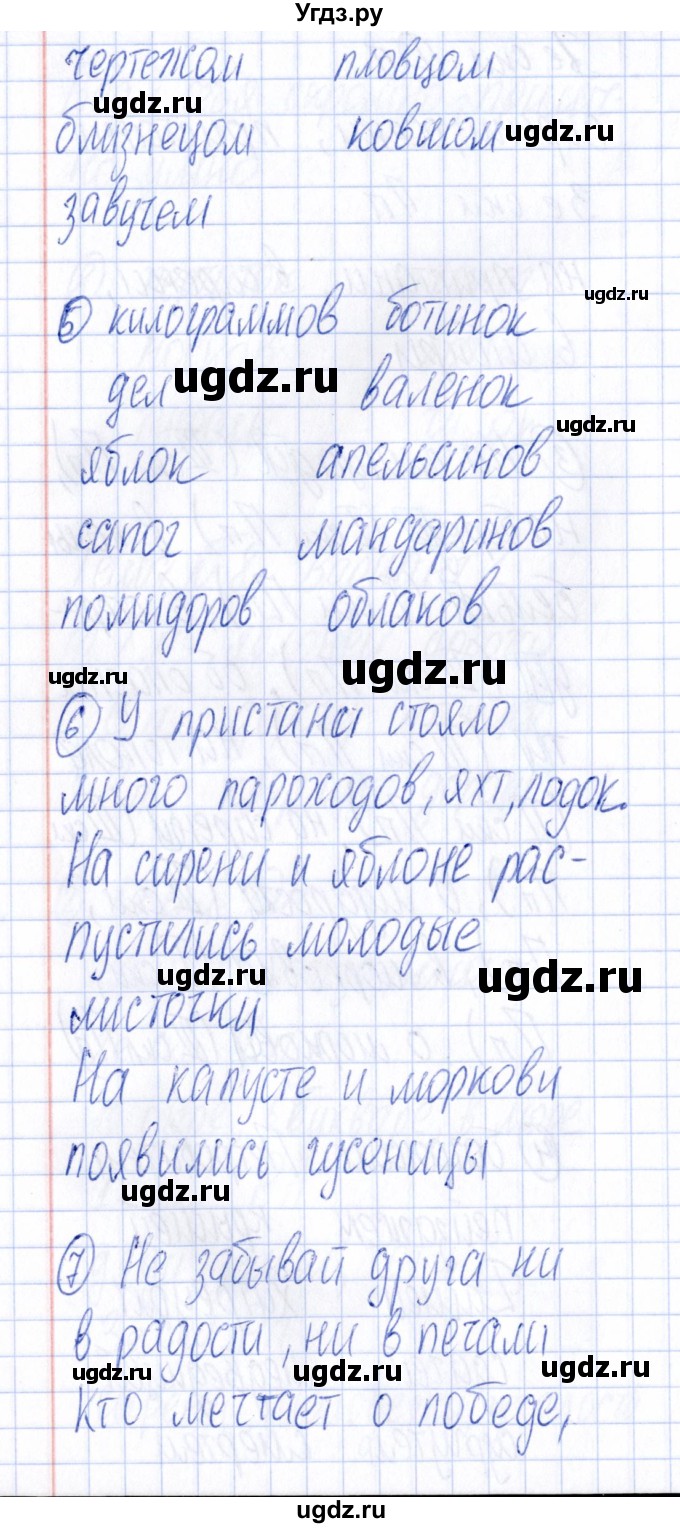 Угдз.ру
чертежом пловцом
ugdz.ru
близнецом ковшом ugdz.ru
завучем
ugdz.ru
5 килограммов ботинок
ugdz.ru
дел валенок
ugdz.ru
яблок апельсинов
сапог мандаринов
помидоров облаков
ugdz.ru
ugdz.ru
6 У пристани стояло
много пароходов, яхт, лодок.
На сирени и яблоне рас-
пустились молодые
ugdz.ru ugdz.ru
листочки
На капусте и моркови
появились гусеницы
ugdz.ru
7 Не забывай друга ни
в радости, ни в печали
ugdz.ru ugdz.ru ugdz.ru
Кто мечтает о победе,
ugdz.ru